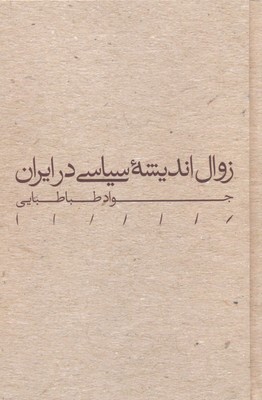 زوال اندیشهٔ سیاسی در ایران
جواد طباطبایی